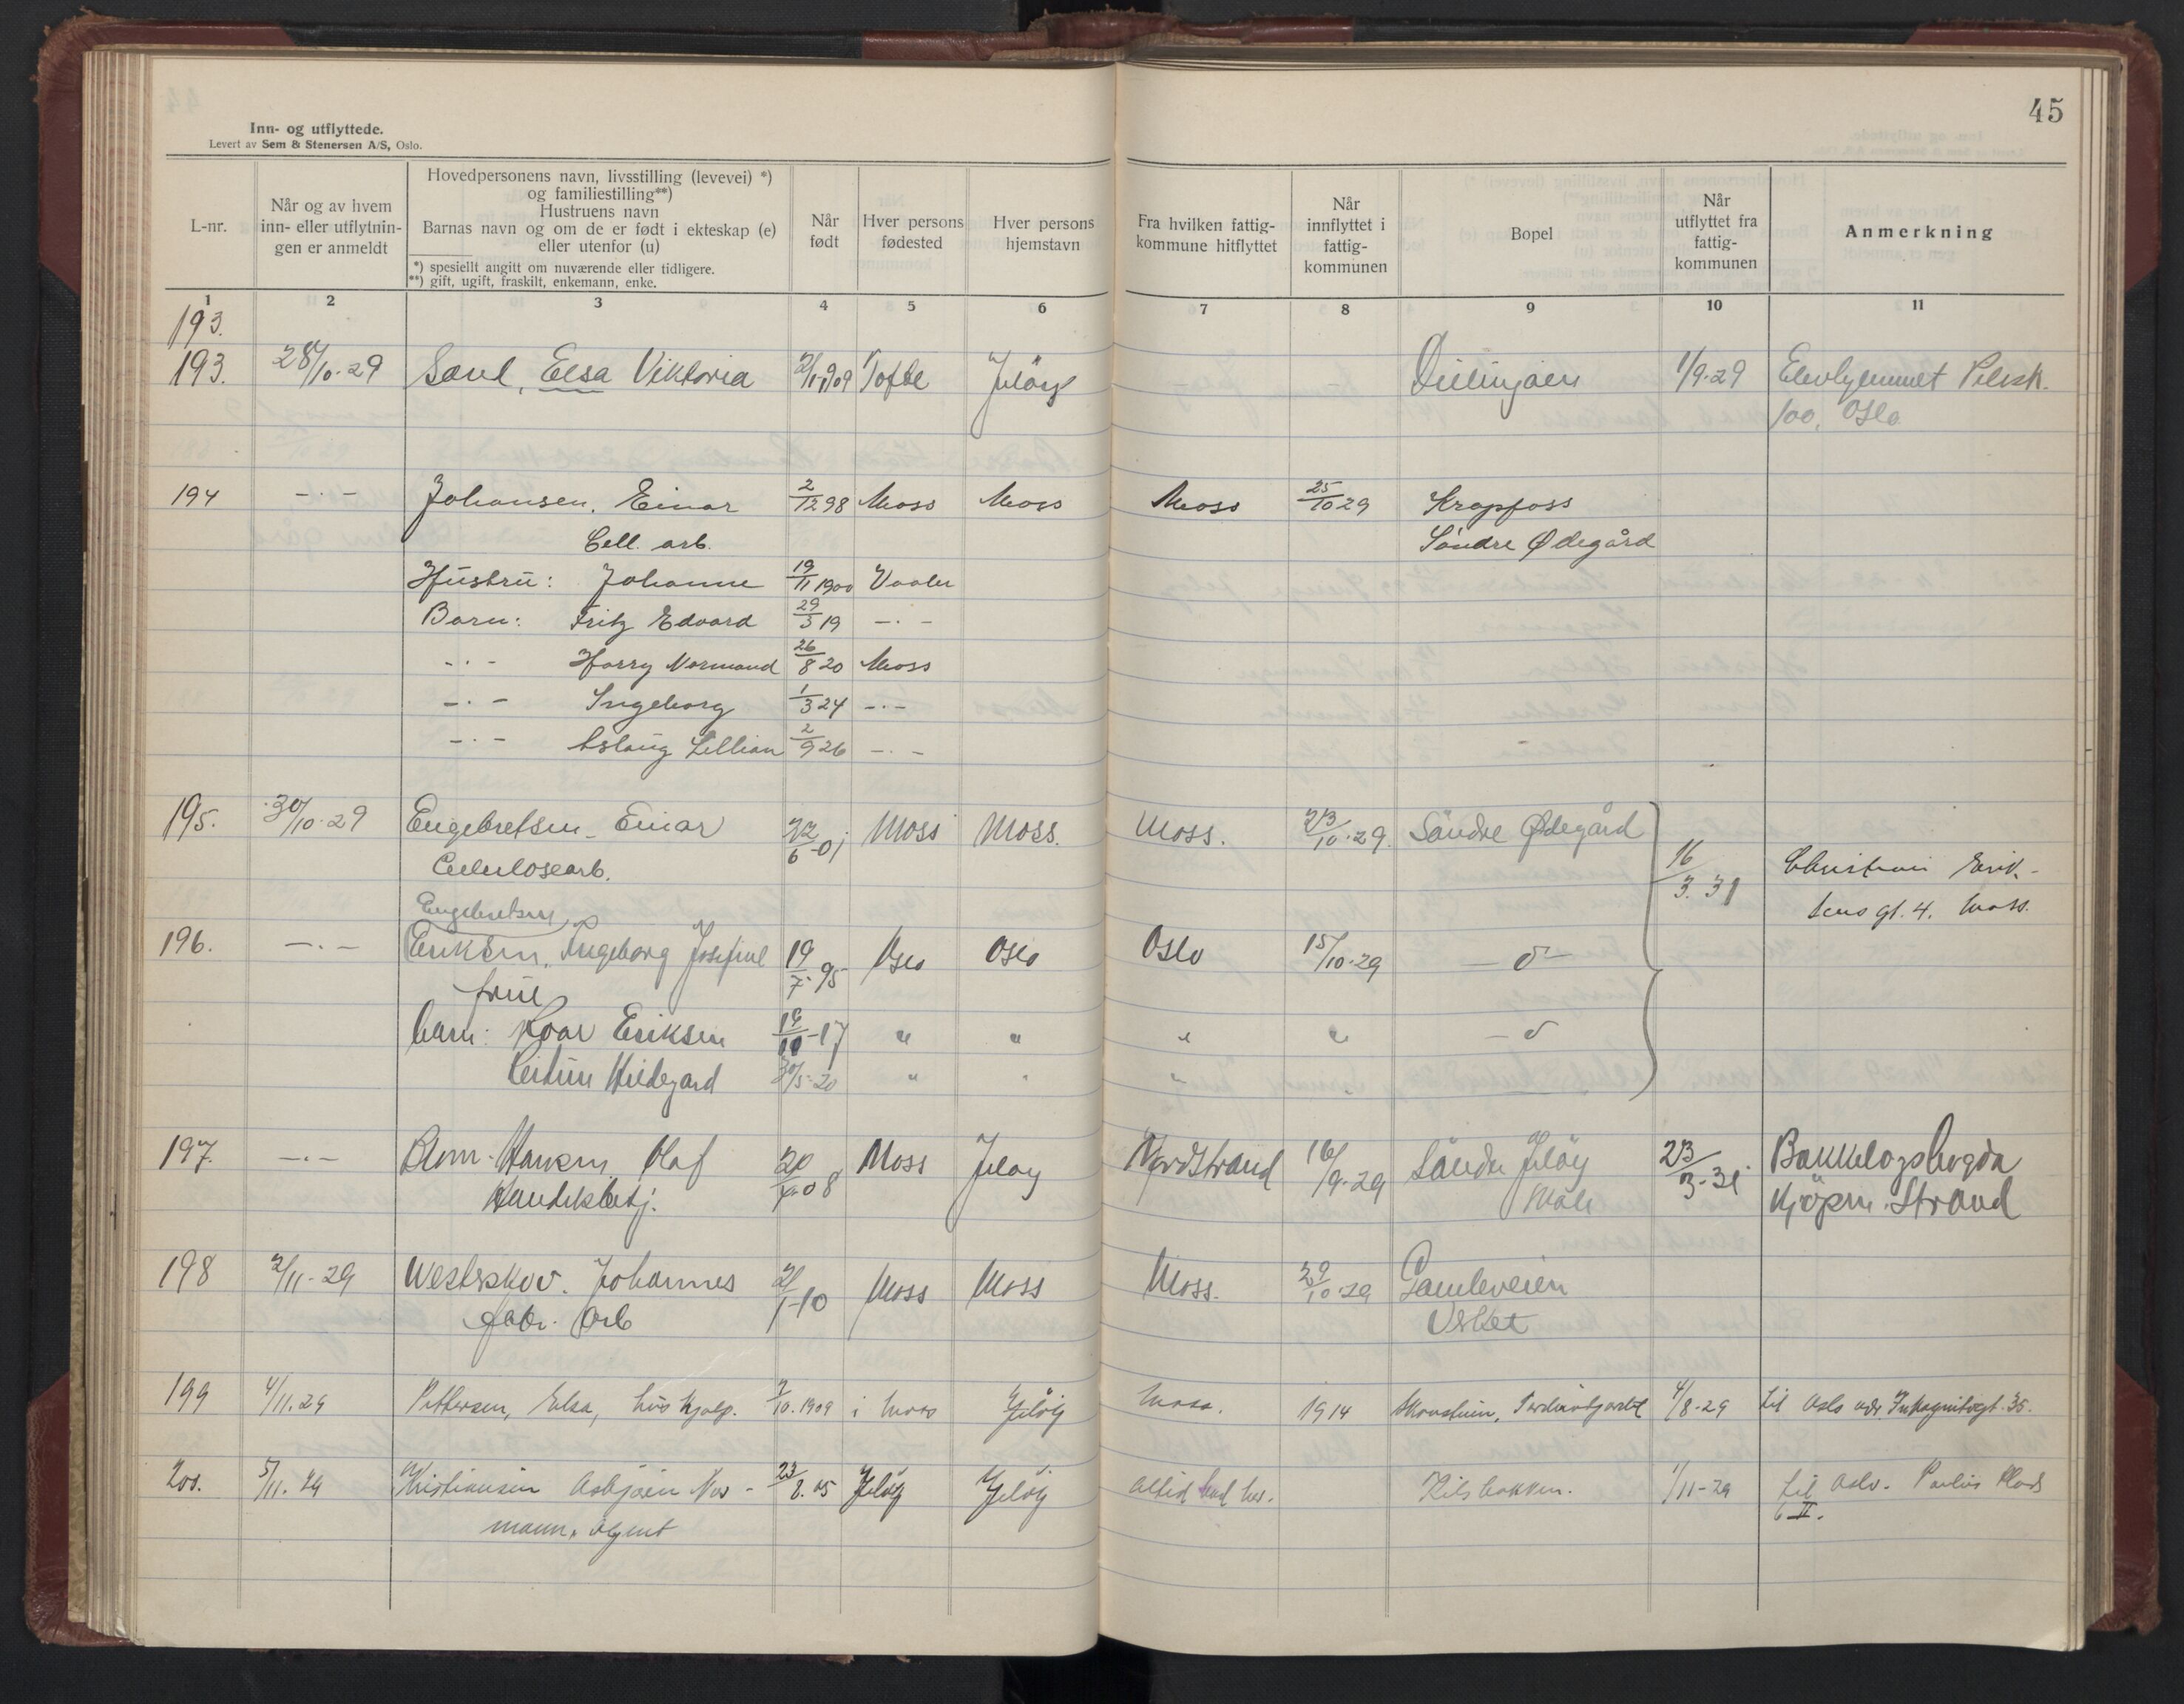 45
Inn- og utflyttede.
Levert av Sem & Stenersen A/S, Oslo.
L-nr.
Når og av hvem inn- eller utflytnin- gen er anmeldt
Hovedpersonens navn, livsstilling (levevei) *)
og familiestilling**)
Hustruens navn
Barnas navn og om de er født i ekteskap (e)
eller utenfor (u)
*) spesiellt angitt om nuværende eller tidligere.
**) gift, ugift, fraskilt, enkemann, enke.
Når født
Hver persons fødested
Hver persons hjemstavn
Fra hvilken fattig- kommune hitflyttet
Når innflyttet i fattig- kommunen
Bopel
Når utflyttet fra fattig- kommunen
Anmerkning
1 2 3 4 5 6 7 8 9 10 11
193.
193. 28/10-29 Elsa Viktoria Tofte Jeløy - - 1/9-29
100, Oslo
194 -·- Johansen, Einar 2/12 98 Moss Moss Moss 25/10 29 Krapfoss
Cell. arb. Søndre Ødegård
Hustru: Johanne 19/11 1900 Vaaler
Barn: Fritz Edvard 29/3 19 -·-
-·- Harry Normand 26/8 20 Moss
-·- Ingeborg 1/3 24 -·-
-·- Aslaug Lillian 2/9 26 -·-
195. 30/10-29 Engebretsen Einar 22/6-01 Moss Moss. Moss. 23/10-29. Søndre Ødegård
Cellulosearb. 16/3.31 Christian Erik-
sens gt. 4. Moss.
Engebretsen
196. -·- Eriksen, Ingeborg Josefine 19/7-95 Oslo Oslo Oslo 15/10-29 -o-
frue
barn: Roar Eriksen 19/10-17 " " " " -o-
Hildegard 30/5-20 " " "
197. -·- Hansen Olaf Moss Jeløy Nordstrand 16/9-29 Søndre Jeløy 23/3-31 Bækkelagshøgda
Handelsbetj. Kjøpm. Strand
198 2/11-29 Westerskov. Johannes 2/1-10 Moss Moss Moss. 29/10-29 Gamleveien
fabr. Arb Verket
199 4/11.29 Pettersen, Elsa, hushjelp. 7/10.1909 i Moss Jeløy Moss. 1914 4/8-29 til Oslo adr. Inkognitogt. 35.
200. 5/11.29 Kristiansen Asbjørn Nor- 23/8.05 Jeløy Jeløy Alltid bod her. Kilsbakken. 1/11-29 til Oslo. Paulus Plads
mann, agent 6 II.